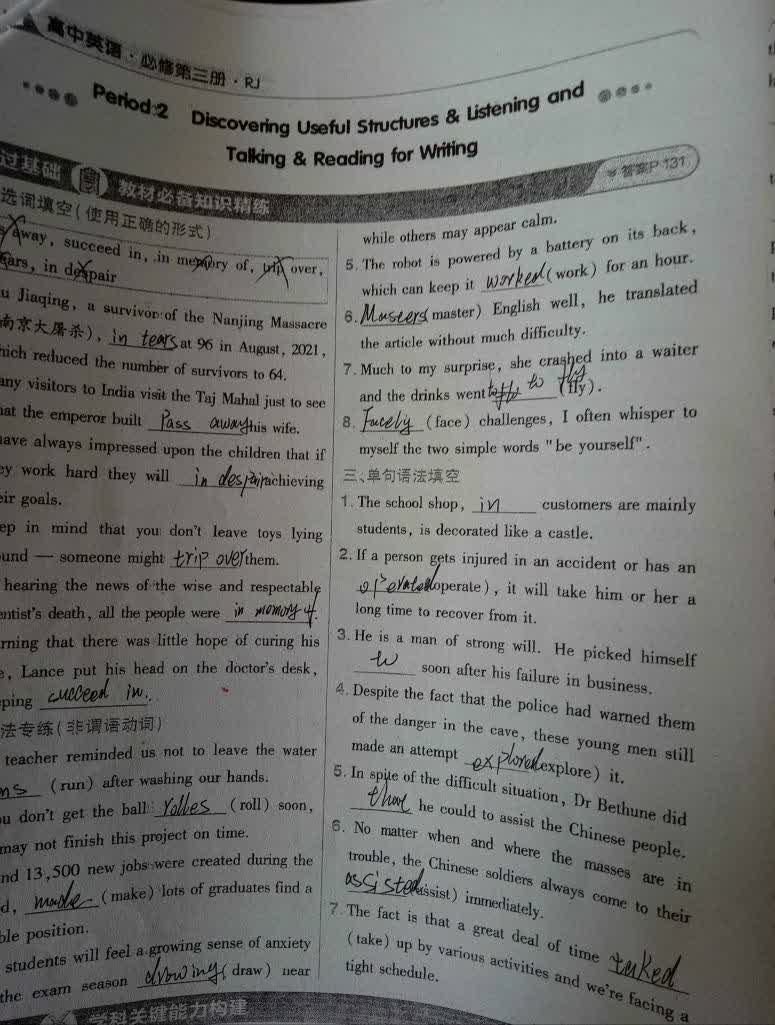 高中英语·必修第三册·RJ
Period 2 Discovering Useful Structures & Listening and
Talking & Reading for Writing
过基础 教材必备知识精练 答案P 131
选词填空(使用正确的形式)
away, succeed in, in memory of, trip over,
ears, in despair
u Jiaqing, a survivor of the Nanjing Massacre
南京大屠杀), in tears at 96 in August, 2021,
hich reduced the number of survivors to 64.
any visitors to India visit the Taj Mahal just to see
hat the emperor built Pass away his wife.
have always impressed upon the children that if
ey work hard they will in despair achieving
eir goals.
ep in mind that you don't leave toys lying
und — someone might trip over them.
hearing the news of the wise and respectable
entist's death, all the people were in memory of.
rning that there was little hope of curing his
e, Lance put his head on the doctor's desk,
ping succeed in.
法专练(非谓语动词)
teacher reminded us not to leave the water
ns (run) after washing our hands.
u don't get the ball rolles (roll) soon,
may not finish this project on time.
nd 13,500 new jobs were created during the
d, made (make) lots of graduates find a
ble position.
students will feel a growing sense of anxiety
the exam season drowing (draw) near
while others may appear calm.
5. The robot is powered by a battery on its back,
which can keep it worked (work) for an hour.
6. Masters (master) English well, he translated
the article without much difficulty.
7. Much to my surprise, she crashed into a waiter
and the drinks went to fly (fly).
8. Facely (face) challenges, I often whisper to
myself the two simple words "be yourself".
三、单句语法填空
1. The school shop, in customers are mainly
students, is decorated like a castle.
2. If a person gets injured in an accident or has an
operated (operate), it will take him or her a
long time to recover from it.
3. He is a man of strong will. He picked himself
to soon after his failure in business.
4. Despite the fact that the police had warned them
of the danger in the cave, these young men still
made an attempt explored (explore) it.
5. In spite of the difficult situation, Dr Bethune did
that he could to assist the Chinese people.
6. No matter when and where the masses are in
trouble, the Chinese soldiers always come to their
assisted (assist) immediately.
7. The fact is that a great deal of time taked
(take) up by various activities and we're facing a
tight schedule.
学科关键能力构建